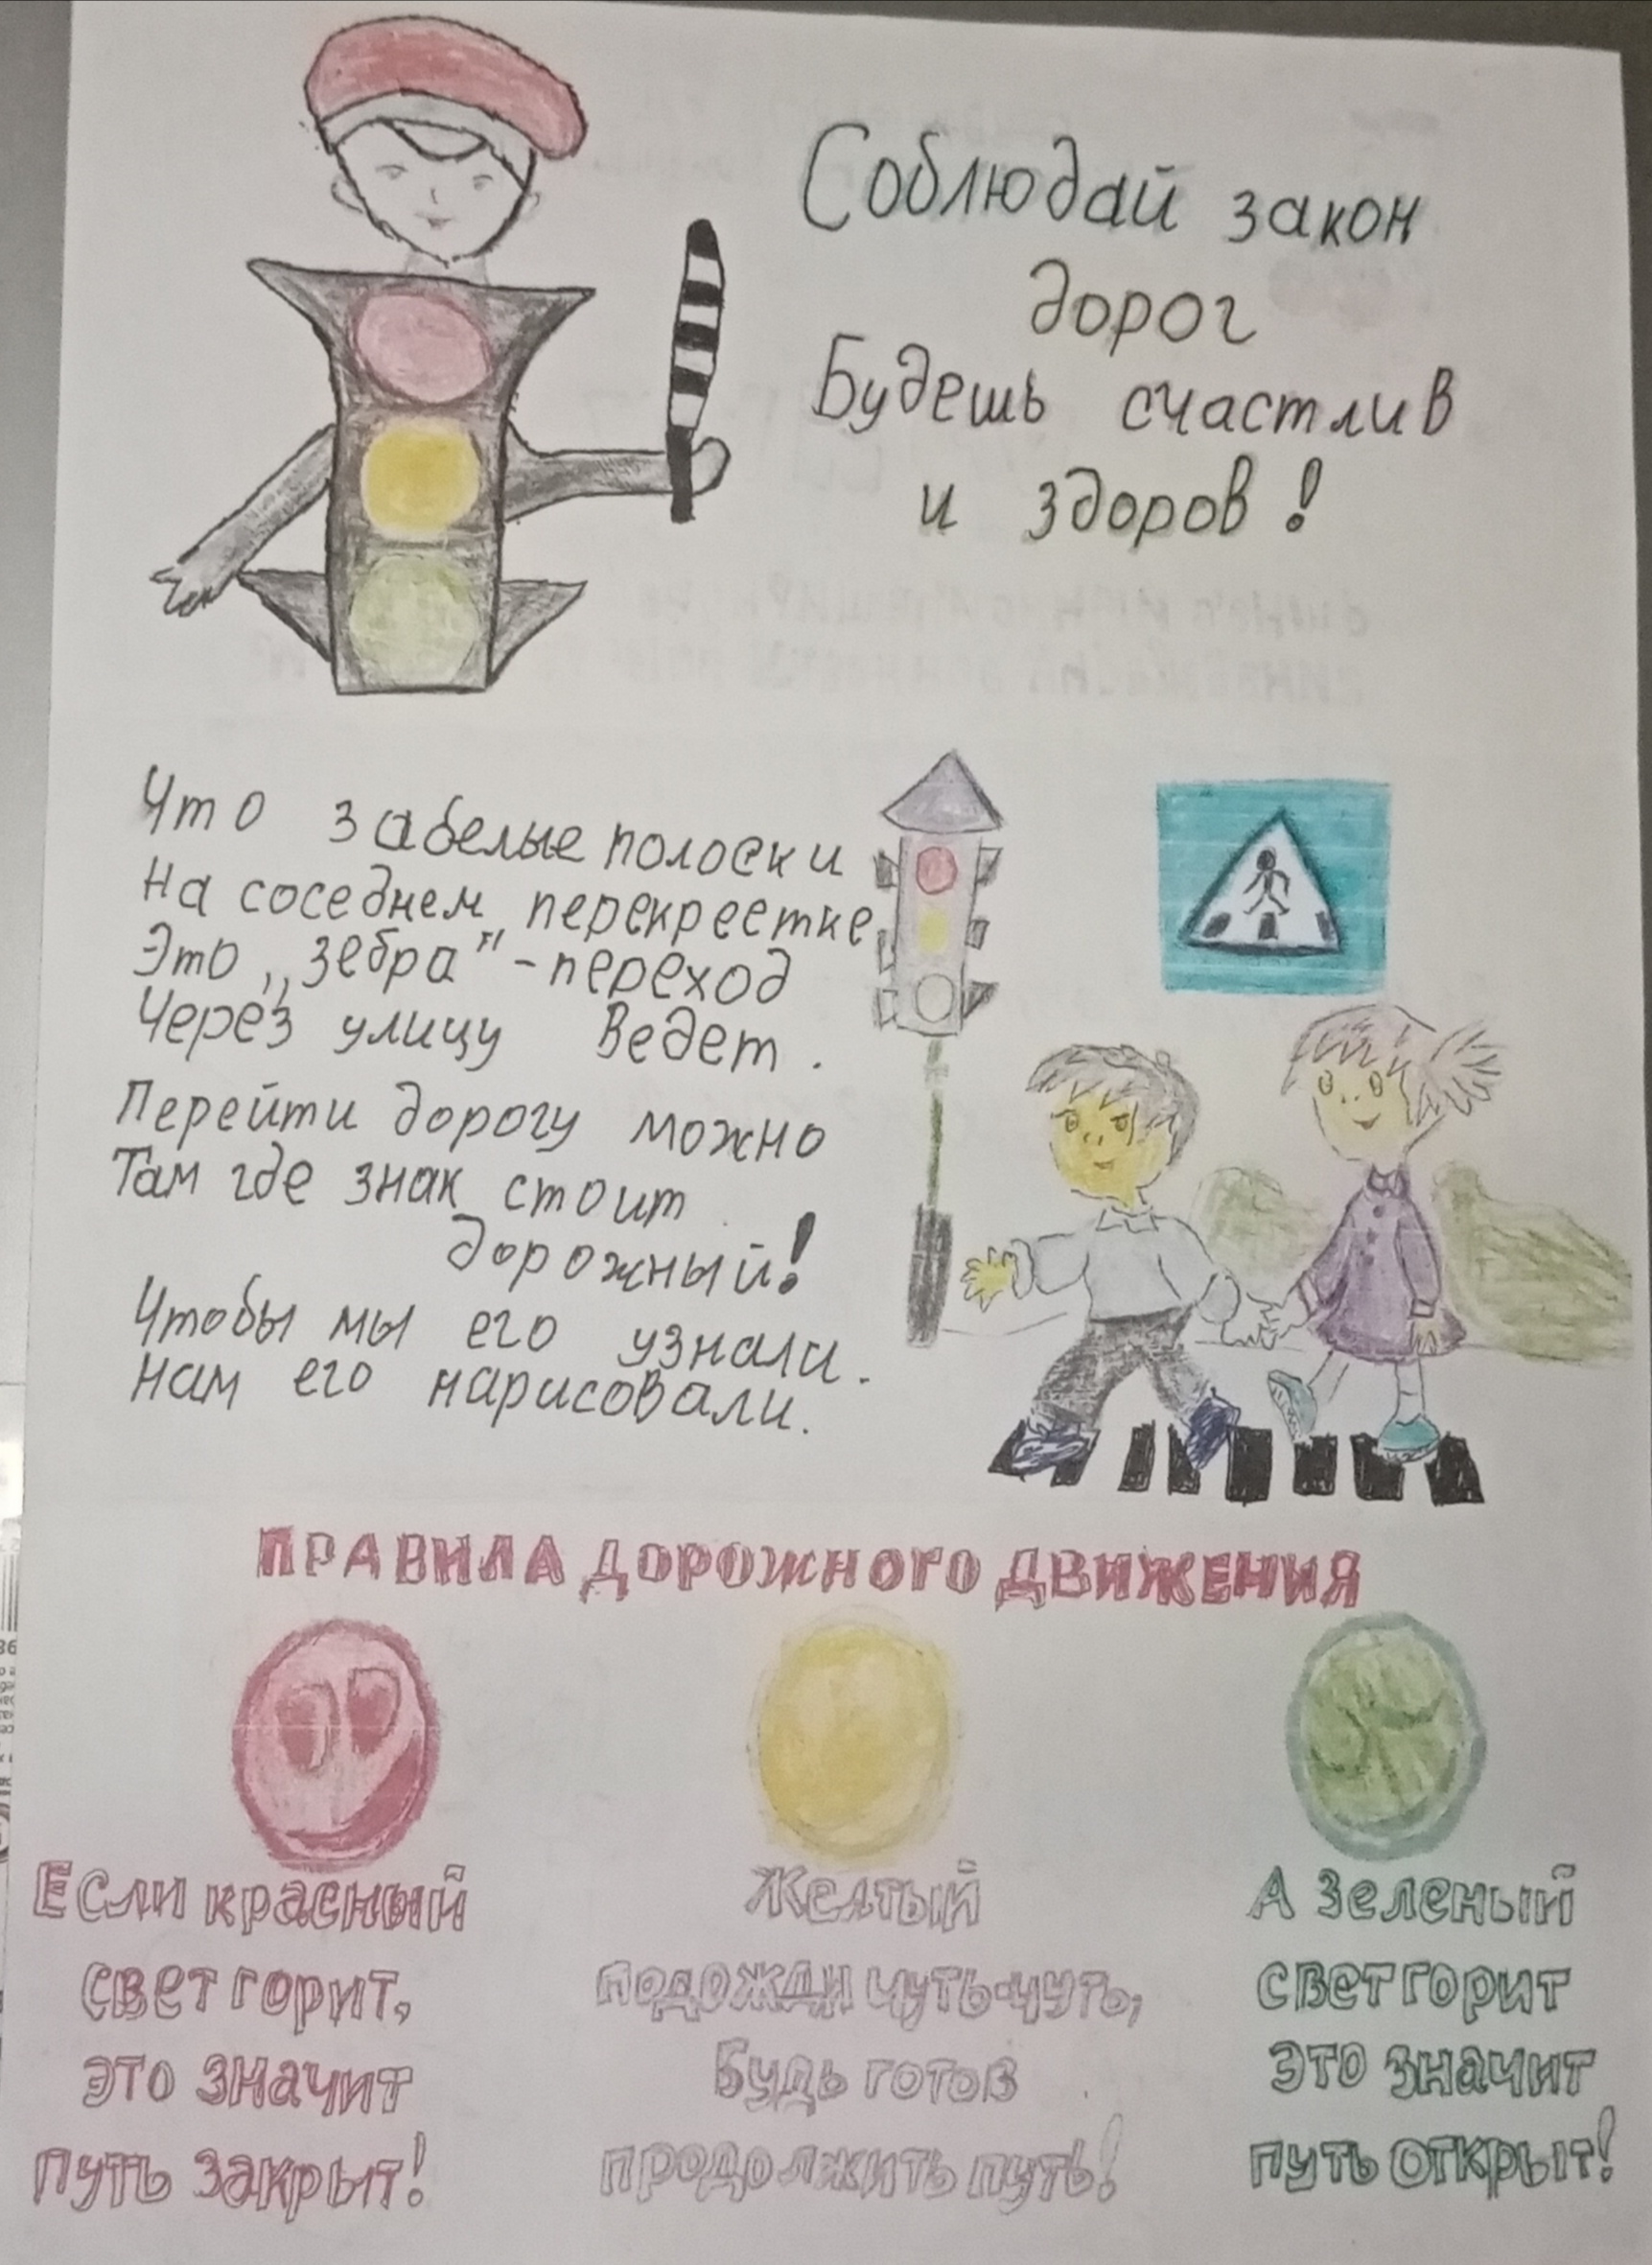 Соблюдай закон
дорог
Будешь счастлив
и здоров!
Что за белые полоски
На соседнем перекрестке
Это „зебра" - переход
Через улицу ведет.
Перейти дорогу можно
Там где знак стоит
дорожный!
Чтобы мы его узнали.
Нам его нарисовали.
ПРАВИЛА ДОРОЖНОГО ДВИЖЕНИЯ
Если красный
свет горит,
это значит
путь закрыт!
Желтый
подожди чуть-чуть,
Будь готов
продолжить путь!
А зеленый
свет горит
это значит
путь открыт!